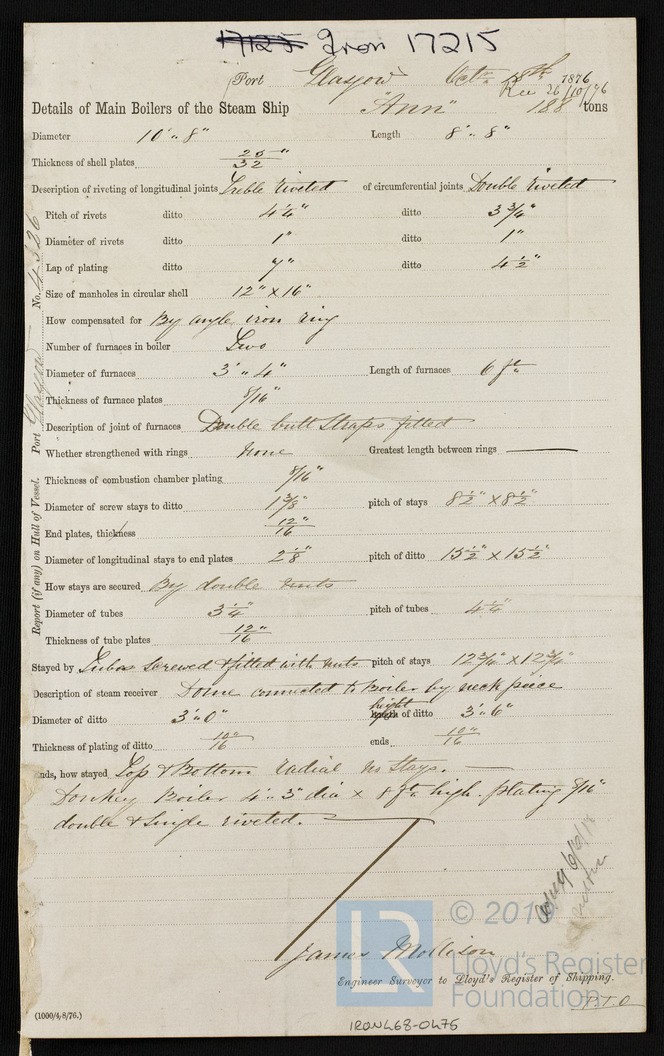 17125 Iron 17215
Port Glasgow Octr. 28th 1876
Rec 26/10/76
Details of Main Boilers of the Steam Ship "Ann" 188 tons
Diameter 10'.. 8" Length 8'.. 8"
Thickness of shell plates
Description of riveting of longitudinal joints Treble riveted of circumferential joints Double riveted
Pitch of rivets ditto 4 1/4" ditto 3 3/4"
Diameter of rivets ditto 1" ditto 1"
Lap of plating ditto 7" ditto 4 1/2"
Size of manholes in circular shell 12" x 16"
How compensated for By angle iron ring
Number of furnaces in boiler Two
Diameter of furnaces 3'.. 4" Length of furnaces 6 ft
Thickness of furnace plates 8/16"
Description of joint of furnaces Double butt Straps fitted
Whether strengthened with rings None Greatest length between rings
Thickness of combustion chamber plating 8/16"
Diameter of screw stays to ditto 1 3/8" pitch of stays 8 1/2" x 8 1/2"
End plates, thickness 12/16"
Diameter of longitudinal stays to end plates 2 1/8" pitch of ditto 15 1/2" x 15 1/2"
How stays are secured By double nuts
Diameter of tubes 3 1/4" pitch of tubes 4 1/4"
Thickness of tube plates 12/16"
Stayed by Tubes screwed & fitted with nuts pitch of stays 12 3/4" x 12 3/4"
Description of steam receiver Dome connected to Boiler by neck piece
Diameter of ditto 3'.. 0" height of ditto 3'.. 6"
Thickness of plating of ditto 10/16" ends 10/16"
Ends, how stayed Top & Bottom radial no Stays.
Donkey Boiler 4'.. 3" dia x 8 ft high. plating 8/16"
double & Single riveted.
James Mollison
Engineer Surveyor to Lloyd's Register of Shipping.
P.T.O
(1000/4/8/76.)
IRON468-0475
Report (if any) on Hull of Vessel. Port Glasgow No. 4326
LR
© 201
Lloyd's Register
Foundation